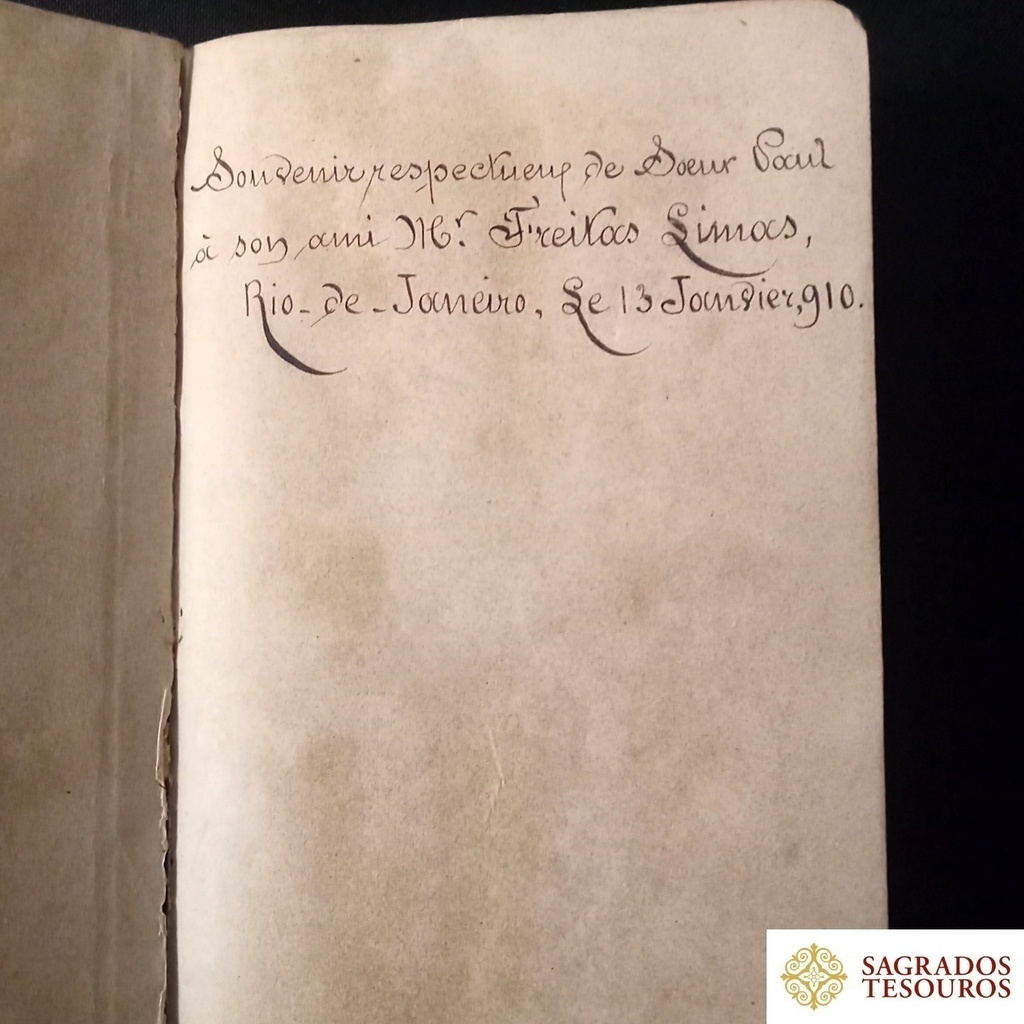 Souvenir respectueux de Soeur Paul
à son ami Mr. Freitas Limas,
Rio-de-Janeiro, Le 13 Janvier, 910.
SAGRADOS
TESOUROS